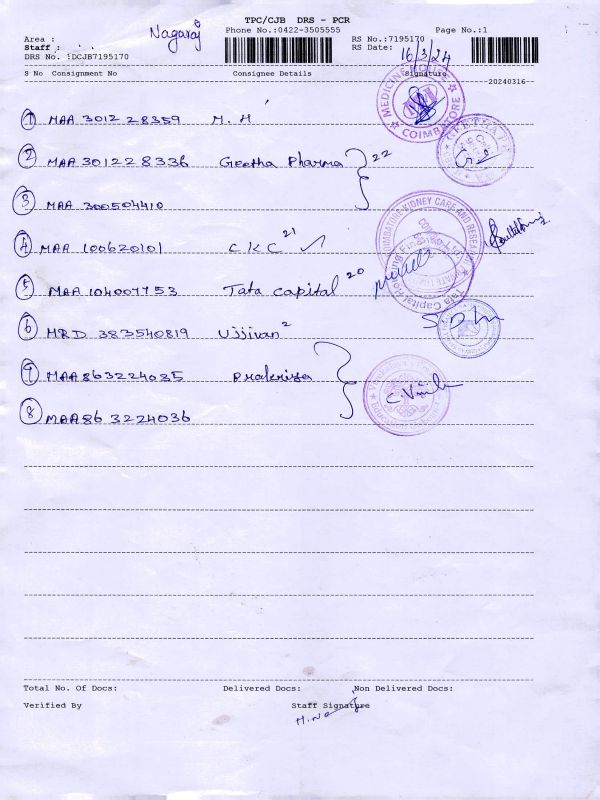 TPC/CJB DRS - PCR
Nagaraj
Phone No.:0422-3505555
Page No.:1
Area :
RS No.:7195170
Staff :
RS Date: 16/3/24
DRS No. :DCJB7195170
S No Consignment No Consignee Details Signature
20240316
1 MAA 301228359 M. H
MEDICINE HOUSE COIMBATORE
2 MAA 301228336 Geetha Pharma 22
3 MAA 300504410
4 MAA 100620101 CKC 21
COIMBATORE KIDNEY CARE AND RESEA
5 MAA 104007753 Tata capital 20
Tata Capital Housing Finance Ltd
6 MRD 383540819 Ujjivan 2
7 MAA863224035 Prakriya
C. Vinil
8 MAA863224036
Total No. Of Docs: Delivered Docs: Non Delivered Docs:
Verified By Staff Signature